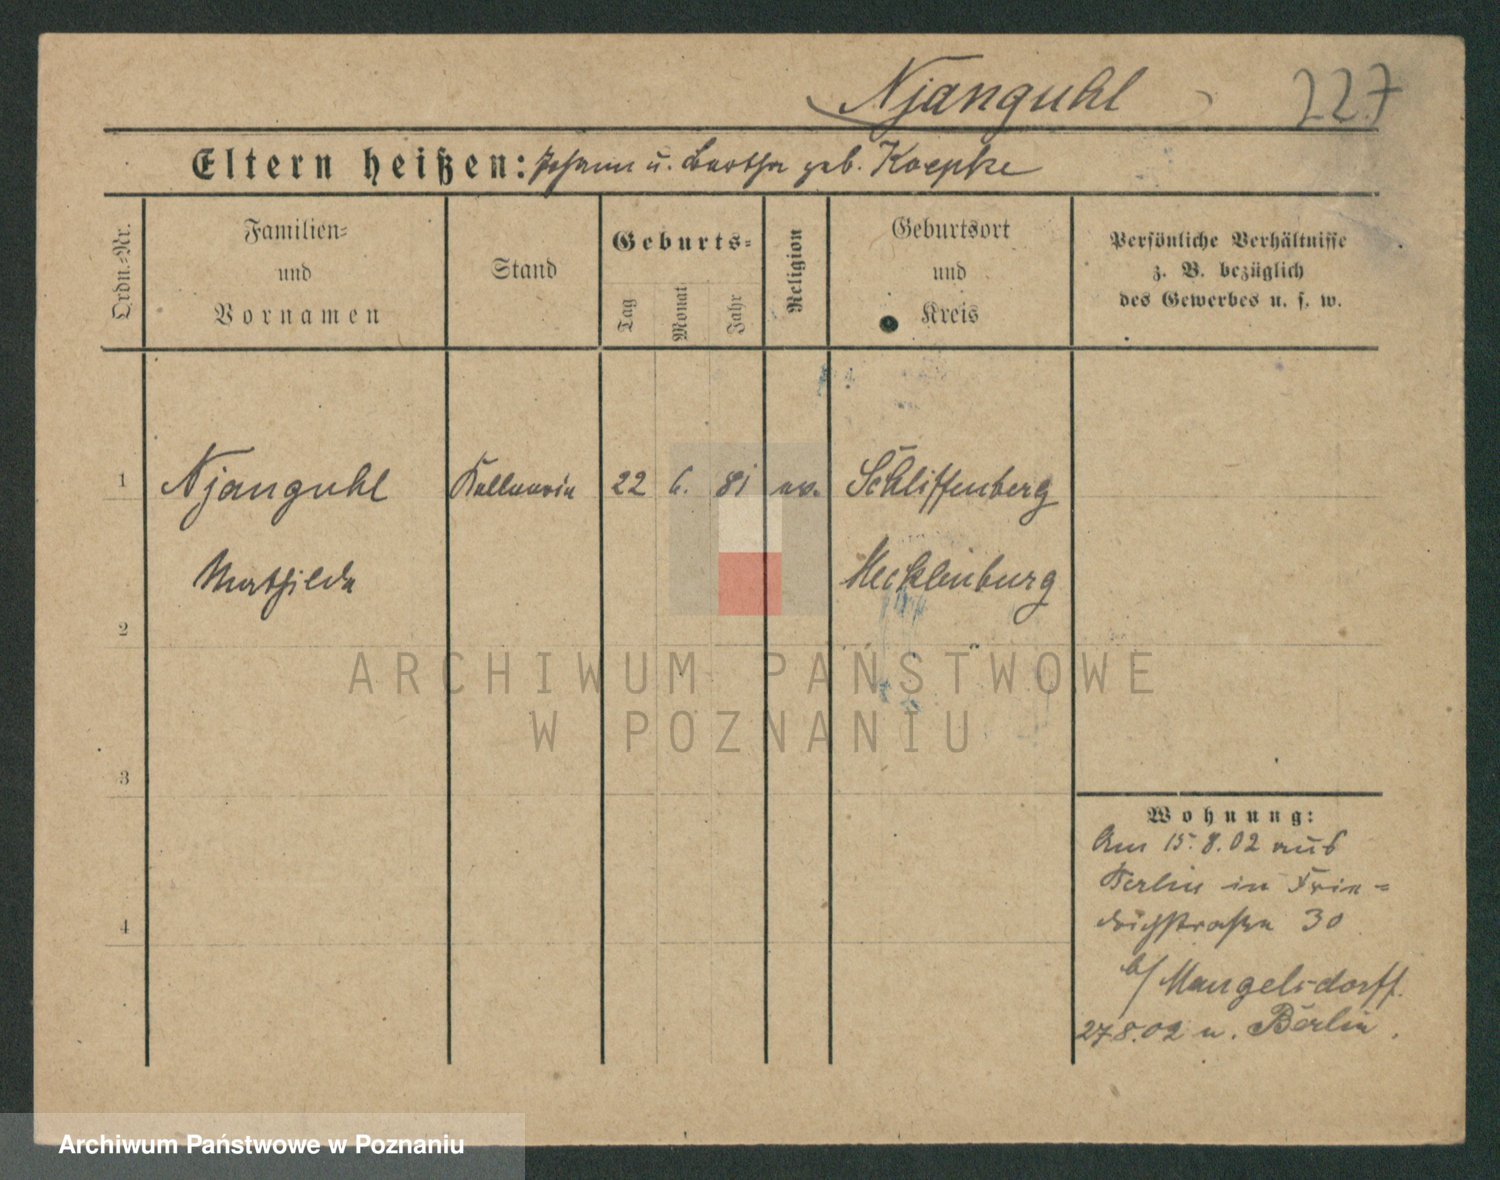 Njanguhl 227
Eltern heißen: Johann u. Bertha geb. Koepke
Ordn.-Nr.
Familien-
und
Vornamen
Stand
Geburts-
Tag
Monat
Jahr
Religion
Geburtsort
und
Kreis
Persönliche Verhältnisse
z. B. bezüglich
des Gewerbes u. s. w.
1 Njanguhl Kellnerin 22 6. 81 ev. Schliffenberg
Mathilde Mecklenburg
2
ARCHIWUM PAŃSTWOWE
W POZNANIU
3
Wohnung:
Am 15.8.02 aus
Berlin in Frie-
drichstraße 30
4
b/ Mangelsdorff.
27.8.02 n. Berlin.
Archiwum Państwowe w Poznaniu